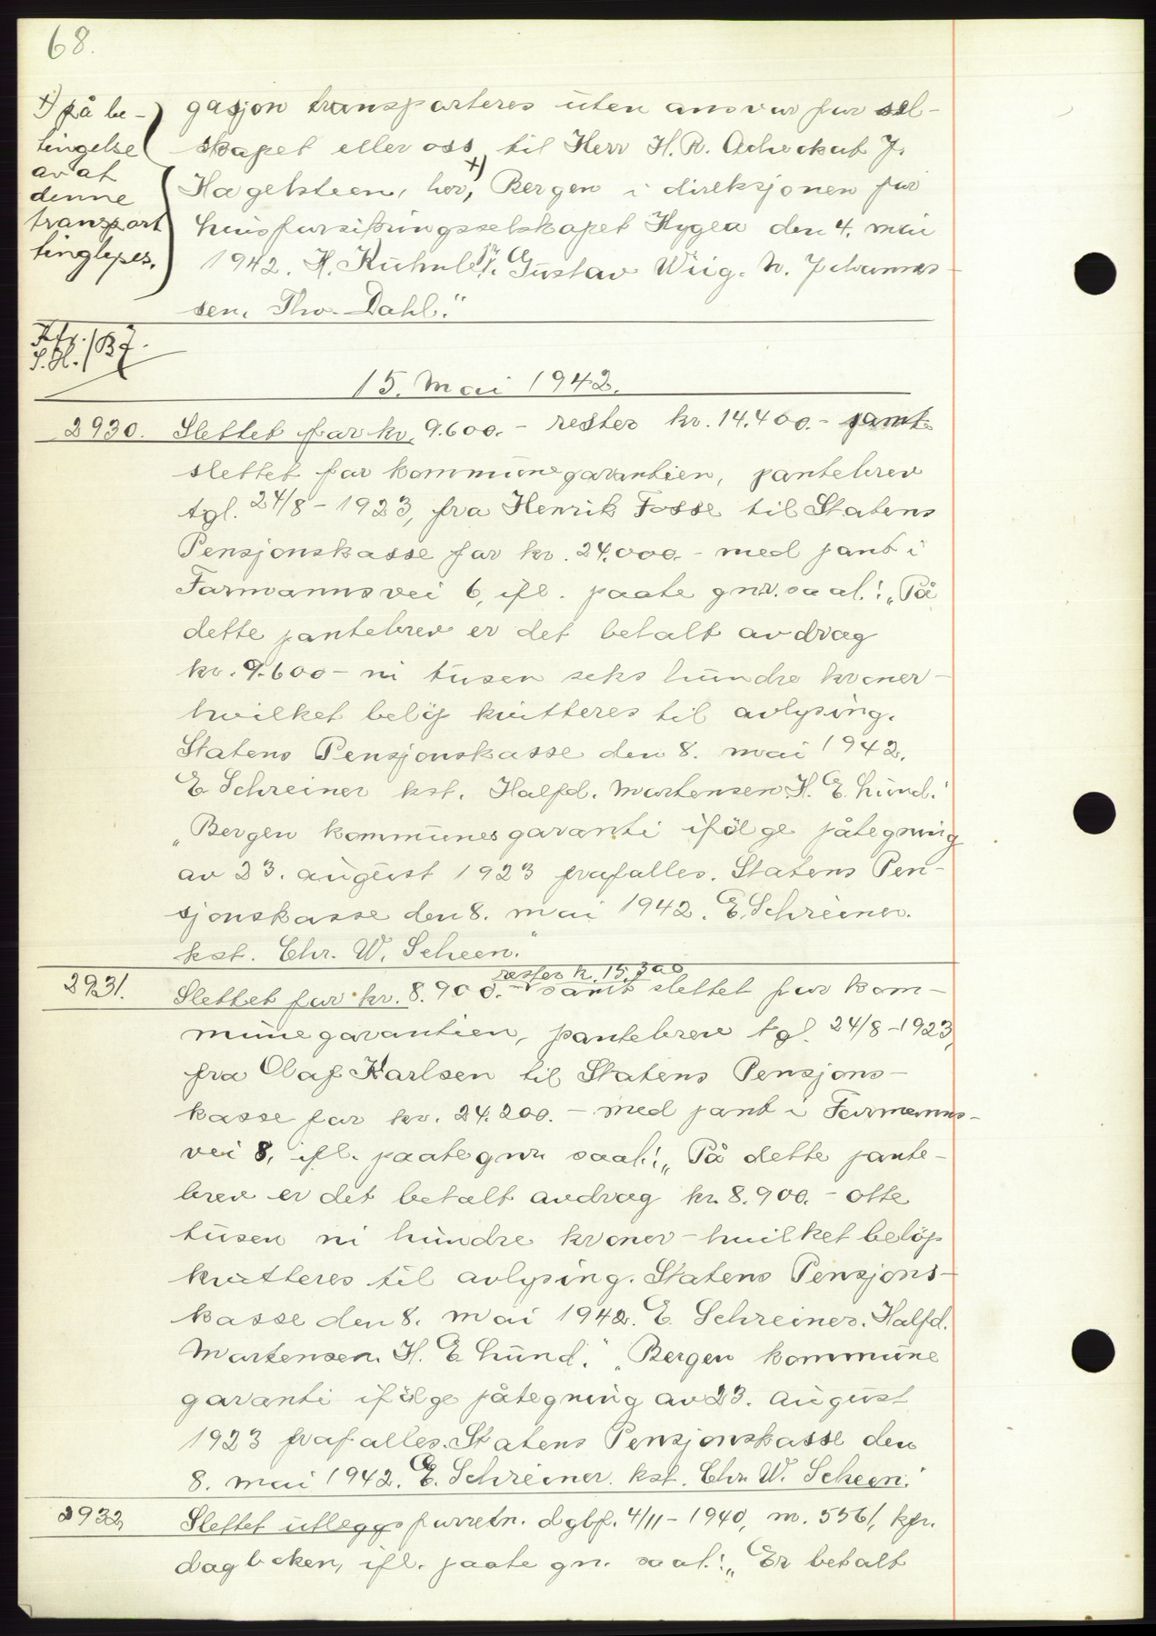 68.
+) på be-
tingelse
av at
denne
transport
tinglyses.
gasjon transporteres uten ansvar for sel-
skapet eller oss til Herr H. R. Advokat J.
Hagelsteen, her, +) Bergen i direksjonen for
husforsikringsselskapet Hygea den 4. mai
1942. H. Kuhnle jr. Gustav Wiig. N. Johannes-
sen. Thv. Dahl."
15. Mai 1942.
2930. Slettet for kr. 9.600.- rester kr. 14.400.- samt
slettet for kommunegarantien, pantebrev
tgl. 24/8-1923, fra Henrik Fosse til Statens
Pensjonskasse for kr. 24.000.- med pant i
Farmannsvei 6, ifl. paategn. saal.: „På
dette pantebrev er det betalt avdrag
kr. 9.600- ni tusen seks hundre kroner-
hvilket beløp kvitteres til avlysing.
Statens Pensjonskasse den 8. mai 1942.
E Schreiner kst. Halfd. Martensen. H. E. Lund."
„Bergen kommunes garanti ifølge påtegning
av 23. august 1923 frafalles. Statens Pen-
sjonskasse den 8. mai 1942. E. Schreiner.
kst. Chr. W. Scheen."
rester kr. 15.300
2931. Slettet for kr. 8.900.- samt slettet for kom-
munegarantien, pantebrev tgl. 24/8-1923,
fra Olaf Karlsen til Statens Pensjons-
kasse for kr. 24.200.- med pant i Farmanns-
vei 8, ifl. paategn. saal.: „På dette pante-
brev er det betalt avdrag kr. 8.900.- otte
tusen ni hundre kroner - hvilket beløp
kvitteres til avlysing. Statens Pensjons-
kasse den 8. mai 1942. E. Schreiner. Halfd.
Martensen. H. E Lund." „Bergen kommune
garanti ifølge påtegning av 23. august
1923 frafalles. Statens Pensjonskasse den
8. mai 1942. E. Schreiner kst. Chr. W. Scheen."
2932, Slettet utleggsforretn. dgbf. 4/11-1940, nr. 5561, kfr.
dagboken, ifl. paategn. saal.: „Er betalt